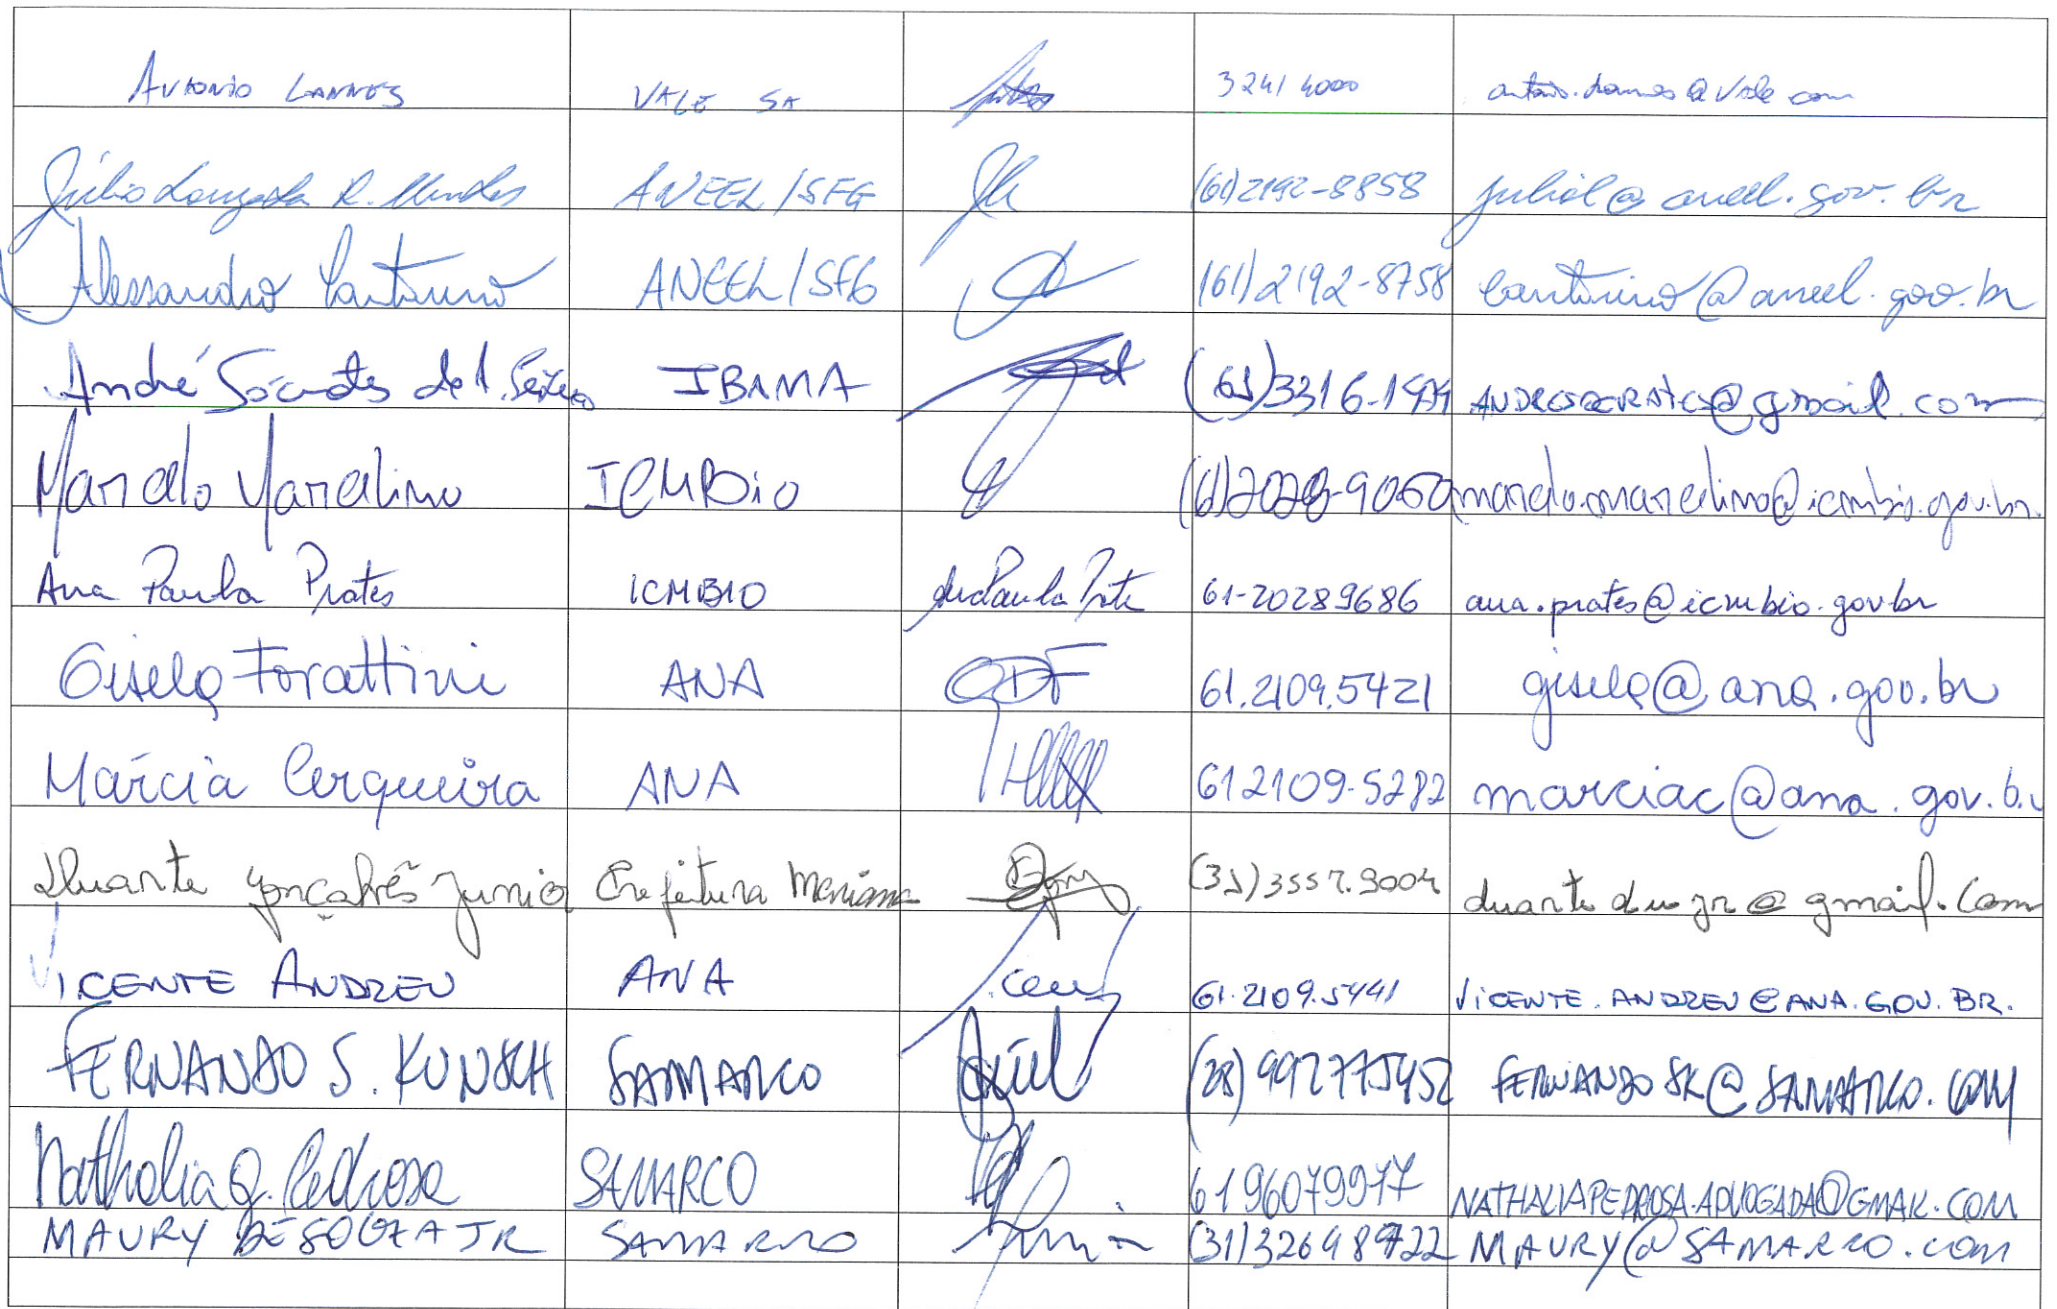 ANTONIO LANNES VALE SA 3241 4000 antonio.lannes@vale.com
Júlio Louzada R. Mendes ANEEL/SFG (61)2192-8858 juliol@aneel.gov.br
Alessandro Cantarino ANEEL/SFG (61)2192-8758 cantarino@aneel.gov.br
André Sócrates de A. IBAMA (61)3316- ANDRESOCRATES@gmail.com
Marcelo Marcelino ICMBio (61)2028-9060 marcelo.marcelino@icmbio.gov.br
Ana Paula Prates ICMBIO Ana Paula Prates 61-20289686 ana.prates@icmbio.gov.br
Gisela Forattini ANA GDF 61.2109.5421 gisela@ana.gov.br
Márcia Cerqueira ANA 61 2109-5282 marciac@ana.gov.br
Duarte Gonçalves Junior Prefeitura Mariana (31)3557.9004 duarte du jr@gmail.com
VICENTE ANDREU ANA 61.2109.5441 VICENTE.ANDREU@ANA.GOV.BR.
FERNANDO S. KUNSCH SAMARCO (28) 992775452 FERNANDOSK@SAMARCO.COM
Nathalia Q. Pedrosa SAMARCO 61 96079977 NATHALIAPEDROSA.ADVOGADA@GMAIL.COM
MAURY DE SOUZA JR SAMARCO (31)32698722 MAURY@SAMARCO.COM